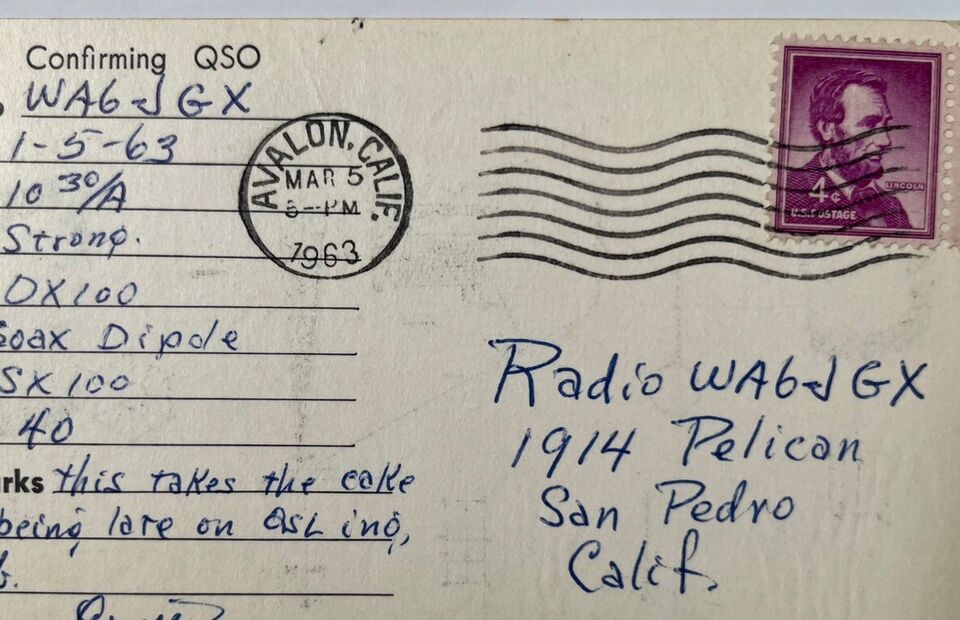 Confirming QSO
WA6JGX
1-5-63
10 30/A
Strong.
DX100
Coax Dipole
SX100
40
rks this takes the cake
being late on QSLing,
AVALON, CALIF.
MAR 5
5-PM
1963
4¢
LINCOLN
U.S. POSTAGE
Radio WA6JGX
1914 Pelican
San Pedro
Calif.